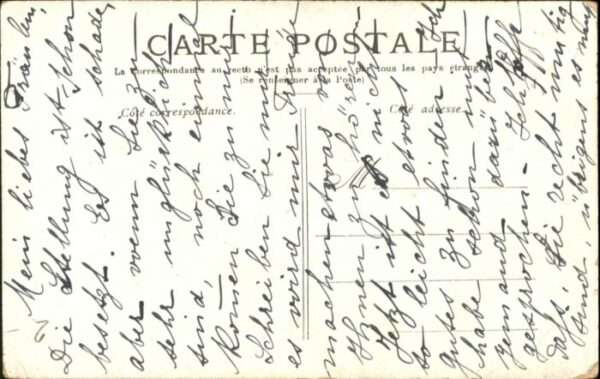 CARTE POSTALE
La correspondance au recto n'est pas acceptée par tous les pays étrangers
(Se renseigner à la Poste)
Côté correspondance.
Côté adresse.
Mein liebes Fräulein,
Die Stellung ist schon
besetzt. Es ist schade,
aber wenn Sie zu
sehr unglücklich
sind, noch einmal
kommen Sie zu mir
Schreiben Sie mir
es wird mir Freude
machen etwas von
Ihnen zu hören.
Jetzt ist es nicht
so leicht etwas
Gutes zu finden. Ich
habe schon mit
jemand dazüber
gesprochen. Ich hoffe
daß Sie recht mutig
sind, übrigens es muß